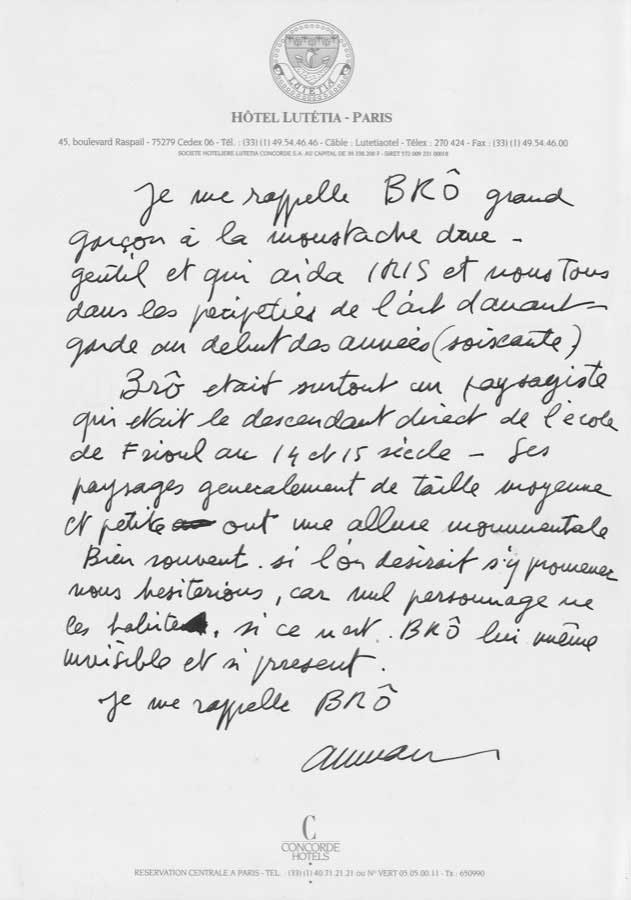 LUTETIA
HÔTEL LUTÉTIA - PARIS
45, boulevard Raspail - 75279 Cedex 06 - Tél. : (33) (1) 49.54.46.46 - Câble : Lutetiaotel - Télex : 270 424 - Fax : (33) (1) 49.54.46.00
SOCIETE HOTELIERE LUTETIA CONCORDE S.A. AU CAPITAL DE 35 358 200 F - SIRET 572 009 251 00018
Je me rappelle BRÔ grand
garçon à la moustache drue -
gentil et qui aida IRIS et nous Tous
dans les peripeties de l'art d'avant-
garde au debut des années (soixante)
Brô etait surtout un paysagiste
qui etait le descendant direct de l'école
de Frioul au 14 et 15 siècle - Ses
paysages generalement de taille moyenne
et petite ont une allure monumentale
Bien souvent. si l'on desirait s'y promener
nous hesiterions, car nul personnage ne
les habite, si ce n'est. BRÔ lui même
invisible et si present.
Je me rappelle BRÔ
arman
C
CONCORDE
HOTELS
RESERVATION CENTRALE A PARIS - TEL. : (33) (1) 40.71.21.21 ou N° VERT 05.05.00.11 - Tx : 650990